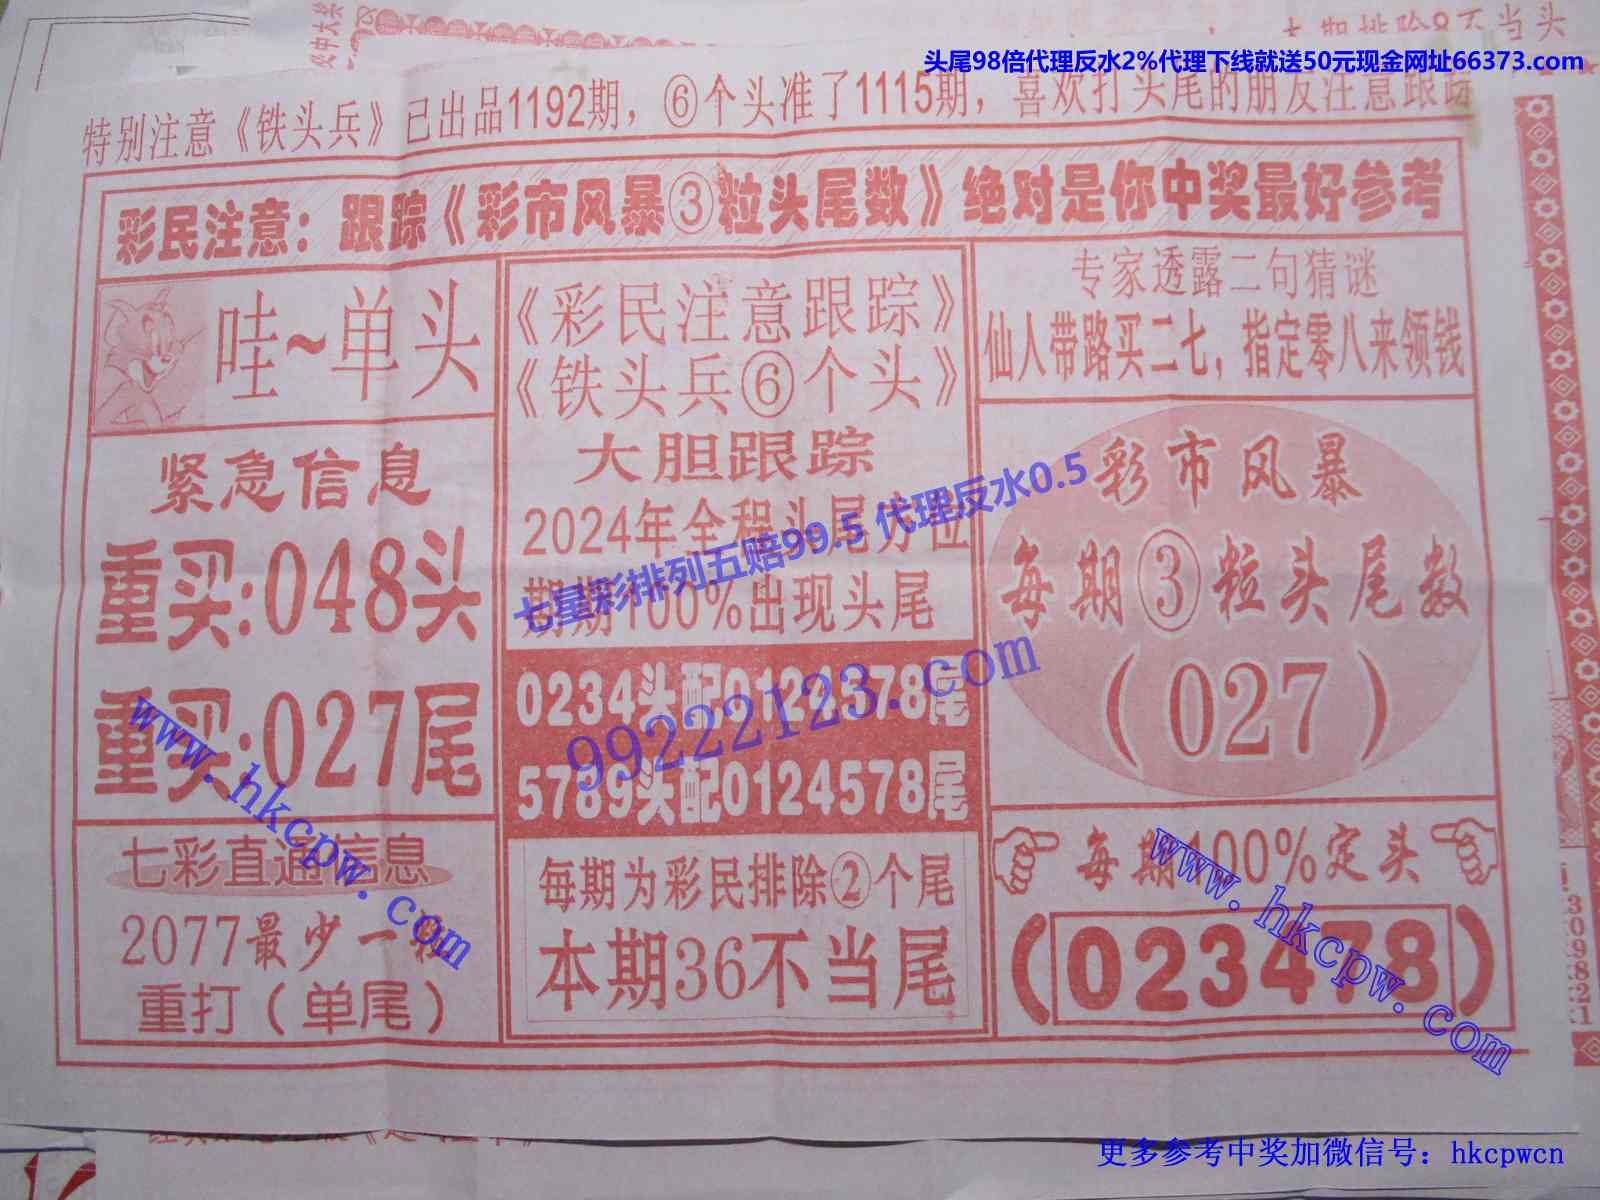 大期排除9不当头
头尾98倍代理反水2%代理下线就送50元现金网址66373.com
特别注意《铁头兵》已出品1192期，⑥个头准了1115期，喜欢打头尾的朋友注意跟踪
彩民注意：跟踪《彩市风暴③粒头尾数》绝对是你中奖最好参考
哇~单头
紧急信息
重买:048头
重买:027尾
七彩直通信息
2077最少一粒
重打（单尾）
《彩民注意跟踪》
《铁头兵⑥个头》
大胆跟踪
2024年全程头尾方位
期期100%出现头尾
0234头配0124578尾
5789头配0124578尾
每期为彩民排除②个尾
本期36不当尾
专家透露二句猜谜
仙人带路买二七，指定零八来领钱
彩市风暴
每期③粒头尾数
（027）
每期100%定头
（023478）
七星彩排列五赔99.5 代理反水0.5
99222123.com
www.hkcpw.com
www.hkcpw.com
更多参考中奖加微信号：hkcpwcn